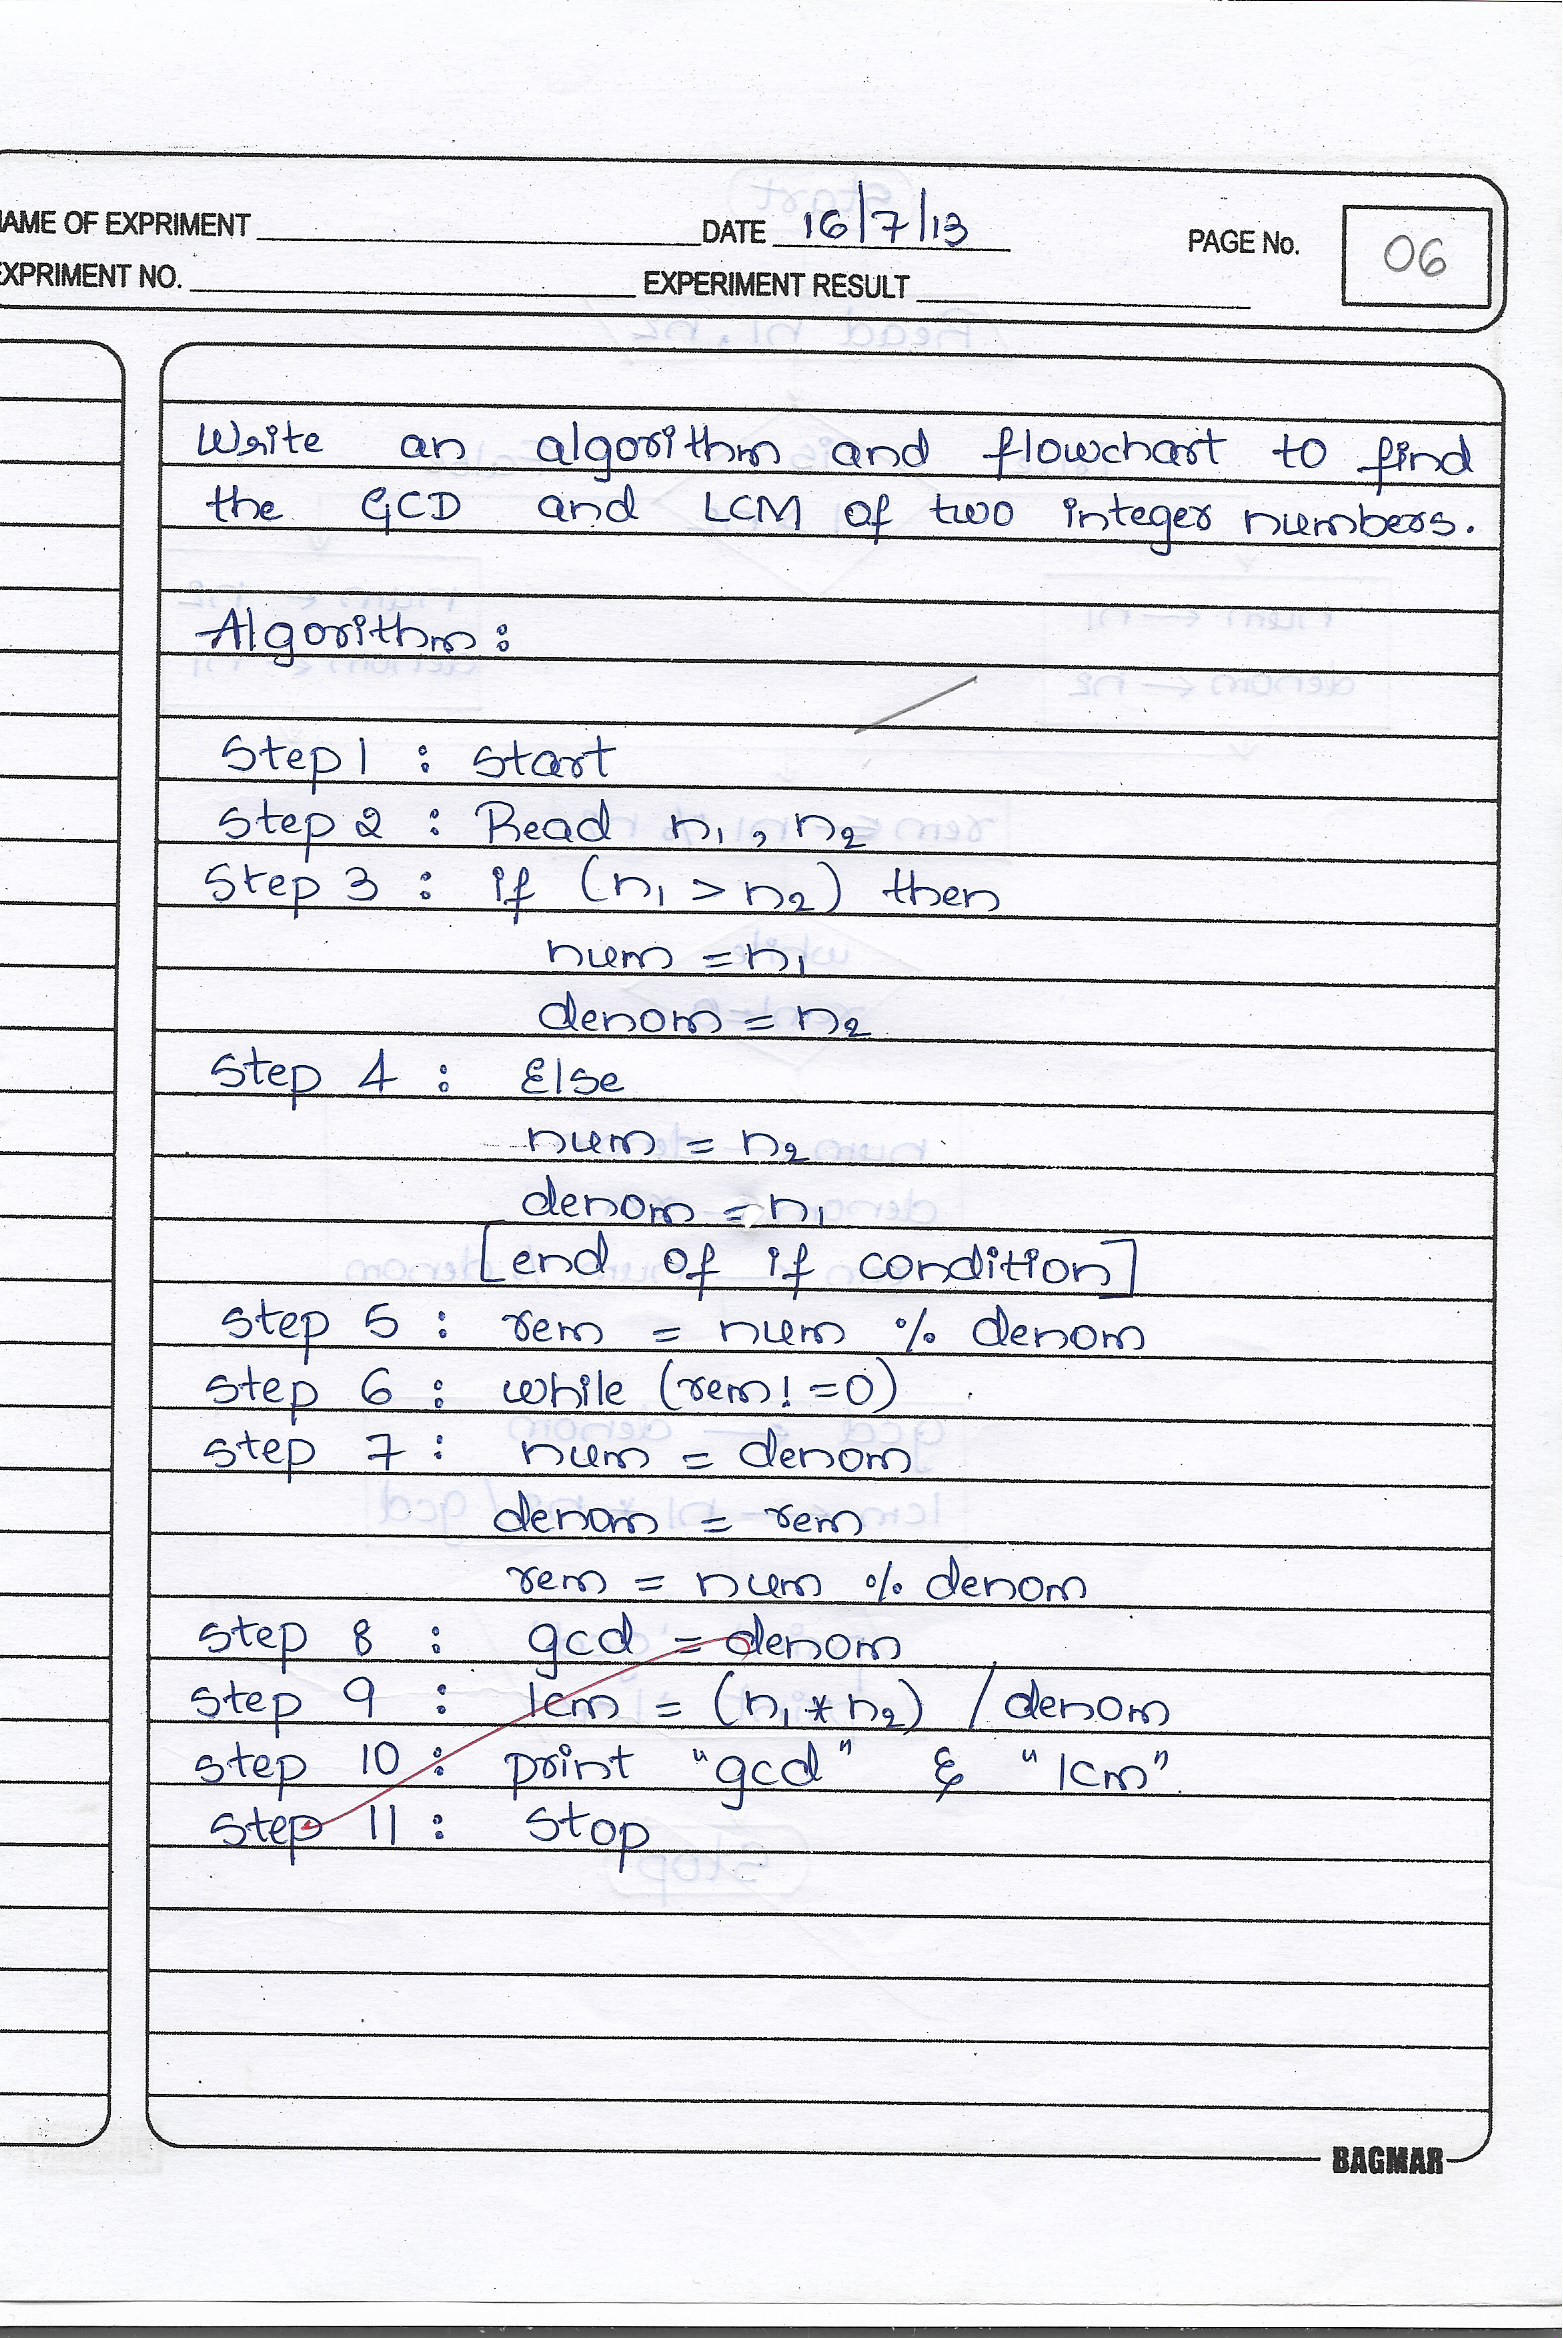 AME OF EXPRIMENT DATE 16/7/13 PAGE No. 06
EXPRIMENT NO. EXPERIMENT RESULT
Write an algorithm and flowchart to find
the GCD and LCM of two integer numbers.
Algorithm:
Step 1 : Start
Step 2 : Read n1, n2
Step 3 : if (n1 > n2) then
num = n1
denom = n2
Step 4 : Else
num = n2
denom = n1
[end of if condition]
Step 5 : rem = num % denom
Step 6 : while (rem! =0)
Step 7 : num = denom
denom = rem
rem = num % denom
Step 8 : gcd = denom
Step 9 : lcm = (n1 * n2) / denom
Step 10 : print "gcd" & "lcm"
Step 11 : Stop
BAGMAR